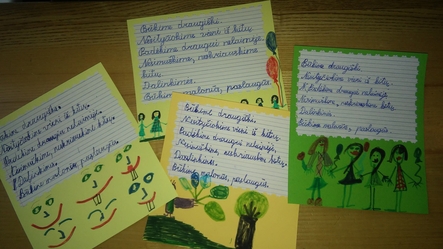 Būkime draugiški.
Nesityčiokime vieni iš kitų.
Padėkime draugui nelaimėje.
Nesimuškime, neskriauskime
kitų.
Dalinkimės.
Būkime malonūs, paslaugūs.
Būkime draugiški.
Nesityčiokime vieni iš kitų.
Padėkime draugui nelaimėje.
Nesimuškime, neskriauskime kitų.
Dalinkimės.
Būkime malonūs, paslaugūs.
Būkime draugiški.
Nesityčiokime vieni iš kitų.
Padėkime draugui nelaimėje.
Nesimuškime, neskriauskime kitų.
Dalinkimės.
Būkime malonūs, paslaugūs.
Būkime draugiški.
Nesityčiokime vieni iš kitų.
Padėkime draugui nelaimėje.
Nesimuškime, neskriauskime kitų.
Dalinkimės.
Būkime malonūs, paslaugūs.